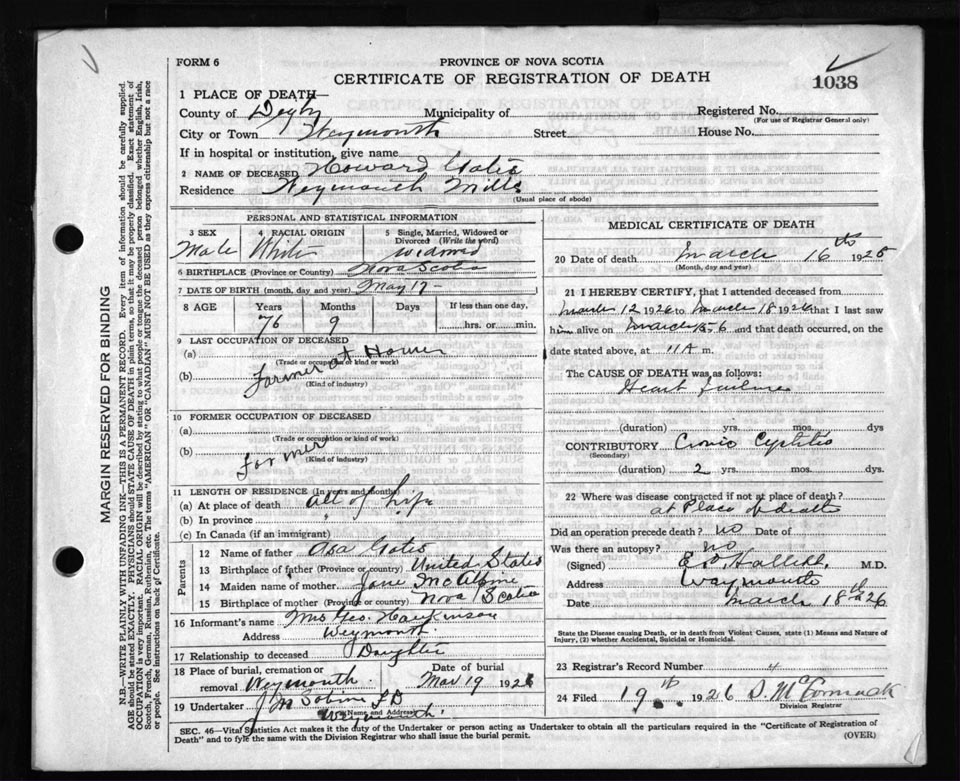 FORM 6
PROVINCE OF NOVA SCOTIA
CERTIFICATE OF REGISTRATION OF DEATH
1038
1 PLACE OF DEATH—
County of Digby Municipality of
Registered No.
(For use of Registrar General only)
City or Town Weymouth Street
House No.
If in hospital or institution, give name
2 NAME OF DECEASED Howard Gates
Residence Weymouth Mills
(Usual place of abode)
PERSONAL AND STATISTICAL INFORMATION
3 SEX
Male
4 RACIAL ORIGIN
White
5 Single, Married, Widowed or Divorced (Write the word)
Widowed
6 BIRTHPLACE (Province or Country) Nova Scotia
7 DATE OF BIRTH (month, day and year) May 17 -
8 AGE
Years
76
Months
9
Days
If less than one day,
hrs. or min.
9 LAST OCCUPATION OF DECEASED
(a) at Home
(Trade or occupation or kind of work)
(b) Farmer
(Kind of industry)
10 FORMER OCCUPATION OF DECEASED
(a)
(Trade or occupation or kind of work)
(b) Farmer
(Kind of industry)
11 LENGTH OF RESIDENCE (In years and months)
(a) At place of death all of life
(b) In province "
(c) In Canada (if an immigrant)
Parents
12 Name of father Asa Gates
13 Birthplace of father (Province or country) United States
14 Maiden name of mother Jane
15 Birthplace of mother (Province or country) Nova Scotia
16 Informant's name Mrs Geo.
Address Weymouth
17 Relationship to deceased Daughter
18 Place of burial, cremation or removal Weymouth
Date of burial
Mar 19 1926
19 Undertaker J M Sabine
(Name and Address)
Weymouth
MEDICAL CERTIFICATE OF DEATH
20 Date of death March 16th 192
(Month, day and year)
21 I HEREBY CERTIFY, that I attended deceased from
March 12 1926 to March 18 1926 that I last saw
him alive on March and that death occurred, on
date stated above, at 11 A m.
The CAUSE OF DEATH was as follows:
Heart failure
(duration) yrs. mos. dys
CONTRIBUTORY Cronic Cystitis
(Secondary)
(duration) 2 yrs. mos. dys.
22 Where was disease contracted if not at place of death?
at Place of death
Did an operation precede death? no Date of
Was there an autopsy? no
(Signed) Hallett, M.D.
Address Weymouth
Date March 18th 1926
State the Disease causing Death, or in death from Violent Causes, state (1) Means and Nature of Injury, (2) whether Accidental, Suicidal or Homicidal.
23 Registrar's Record Number 4
24 Filed 19th 1926 D. McCormack
Division Registrar
SEC. 46—Vital Statistics Act makes it the duty of the Undertaker or person acting as Undertaker to obtain all the particulars required in the "Certificate of Registration of
Death" and to fyle the same with the Division Registrar who shall issue the burial permit.
(OVER)
MARGIN RESERVED FOR BINDING
N.B.—WRITE PLAINLY WITH UNFADING INK—THIS IS A PERMANENT RECORD. Every item of information should be carefully supplied.
AGE should be stated EXACTLY. PHYSICIANS should STATE CAUSE OF DEATH in plain terms, so that it may be properly classified. Exact statement of
OCCUPATION is very important. RACIAL ORIGIN will be described by stating to what people or tongue the deceased person belonged whether English, Irish,
Scotch, French, German, Russian, Ruthenian, etc. The terms "AMERICAN" or "CANADIAN" MUST NOT BE USED as they express citizenship but not a race
or people. See instructions on back of Certificate.